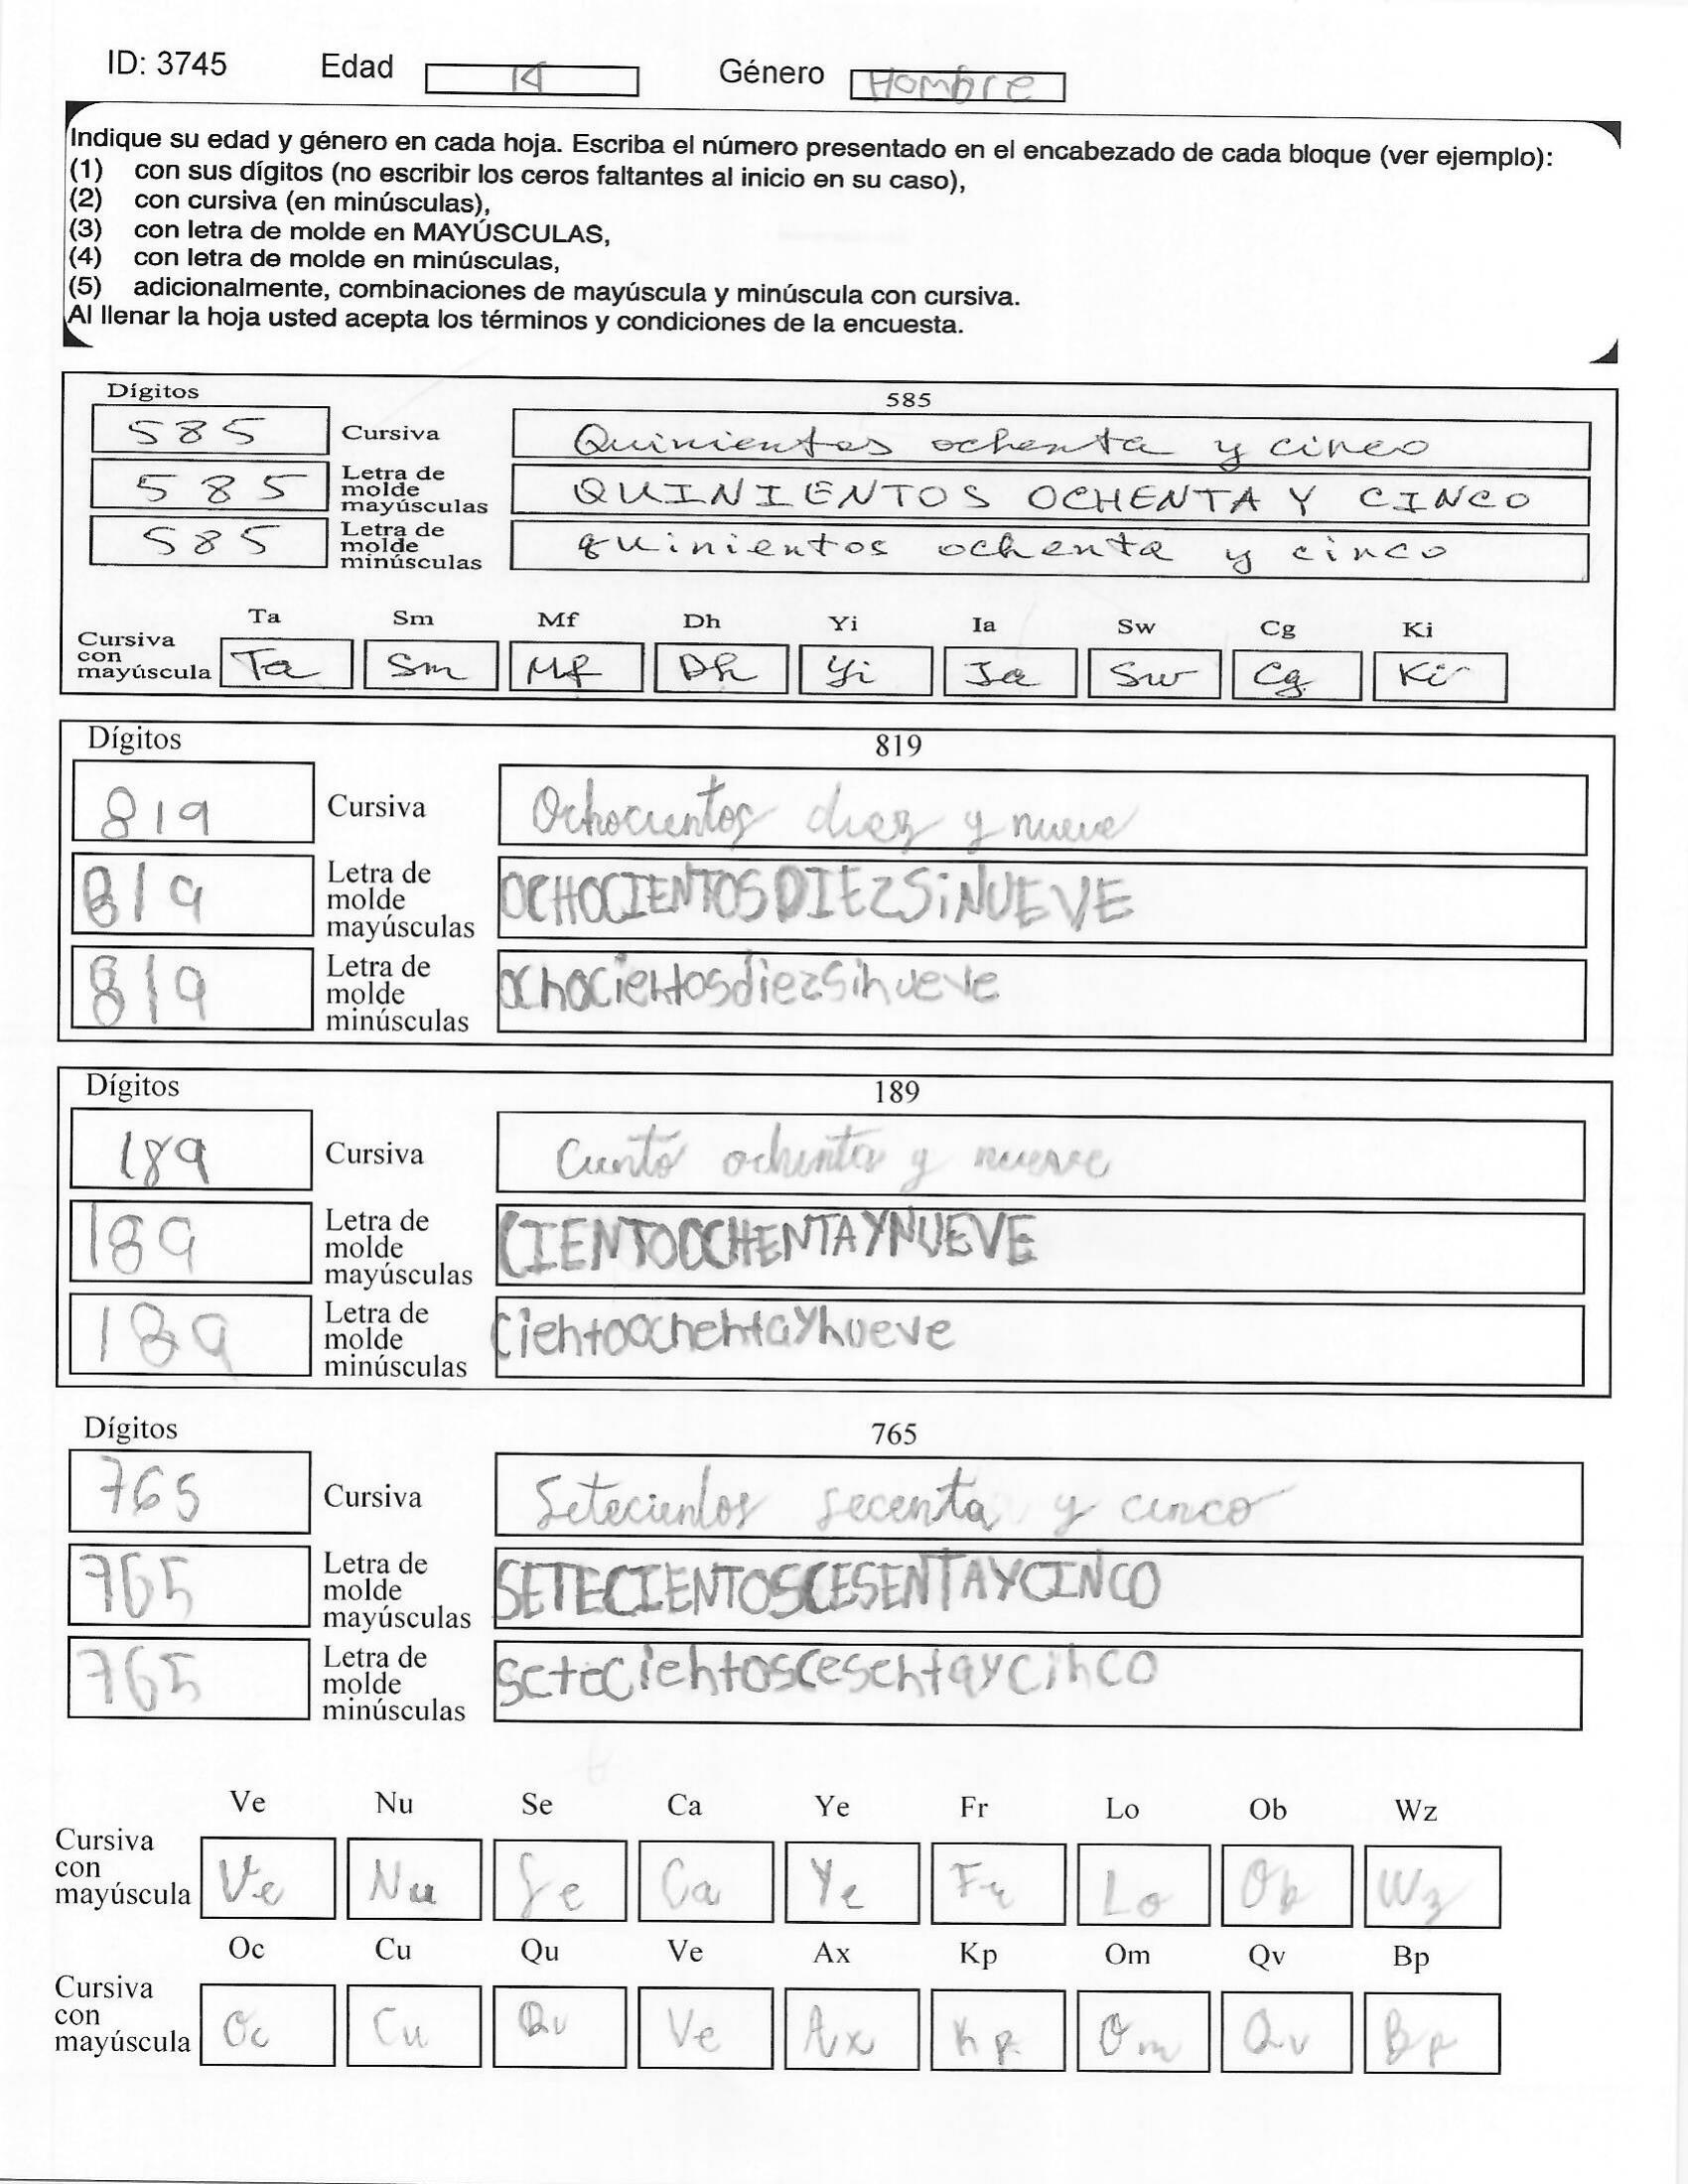 ID: 3745 Edad 14 Género Hombre
Indique su edad y género en cada hoja. Escriba el número presentado en el encabezado de cada bloque (ver ejemplo):
(1) con sus dígitos (no escribir los ceros faltantes al inicio en su caso),
(2) con cursiva (en minúsculas),
(3) con letra de molde en MAYÚSCULAS,
(4) con letra de molde en minúsculas,
(5) adicionalmente, combinaciones de mayúscula y minúscula con cursiva.
Al llenar la hoja usted acepta los términos y condiciones de la encuesta.
Dígitos 585
585 Cursiva Quinientos ochenta y cinco
585 Letra de molde mayúsculas QUINIENTOS OCHENTA Y CINCO
585 Letra de molde minúsculas quinientos ochenta y cinco
Ta Sm Mf Dh Yi Ia Sw Cg Ki
Cursiva con mayúscula Ta Sm Mf Dh Yi Ia Sw Cg Ki
Dígitos 819
819 Cursiva Ochocientos diez y nueve
819 Letra de molde mayúsculas OCHOCIENTOSDIEZSiNUEVE
819 Letra de molde minúsculas ochocientosdiezsinueve
Dígitos 189
189 Cursiva Ciento ochenta y nueve
189 Letra de molde mayúsculas CIENTOOCHENTAYNUEVE
189 Letra de molde minúsculas cientoochentaynueve
Dígitos 765
765 Cursiva Setecientos secenta y cinco
765 Letra de molde mayúsculas SETECIENTOSCESENTAYCINCO
765 Letra de molde minúsculas setecientoscesentaycinco
Ve Nu Se Ca Ye Fr Lo Ob Wz
Cursiva con mayúscula Ve Nu Se Ca Ye Fr Lo Ob Wz
Oc Cu Qu Ve Ax Kp Om Qv Bp
Cursiva con mayúscula Oc Cu Qu Ve Ax Kp Om Qv Bp